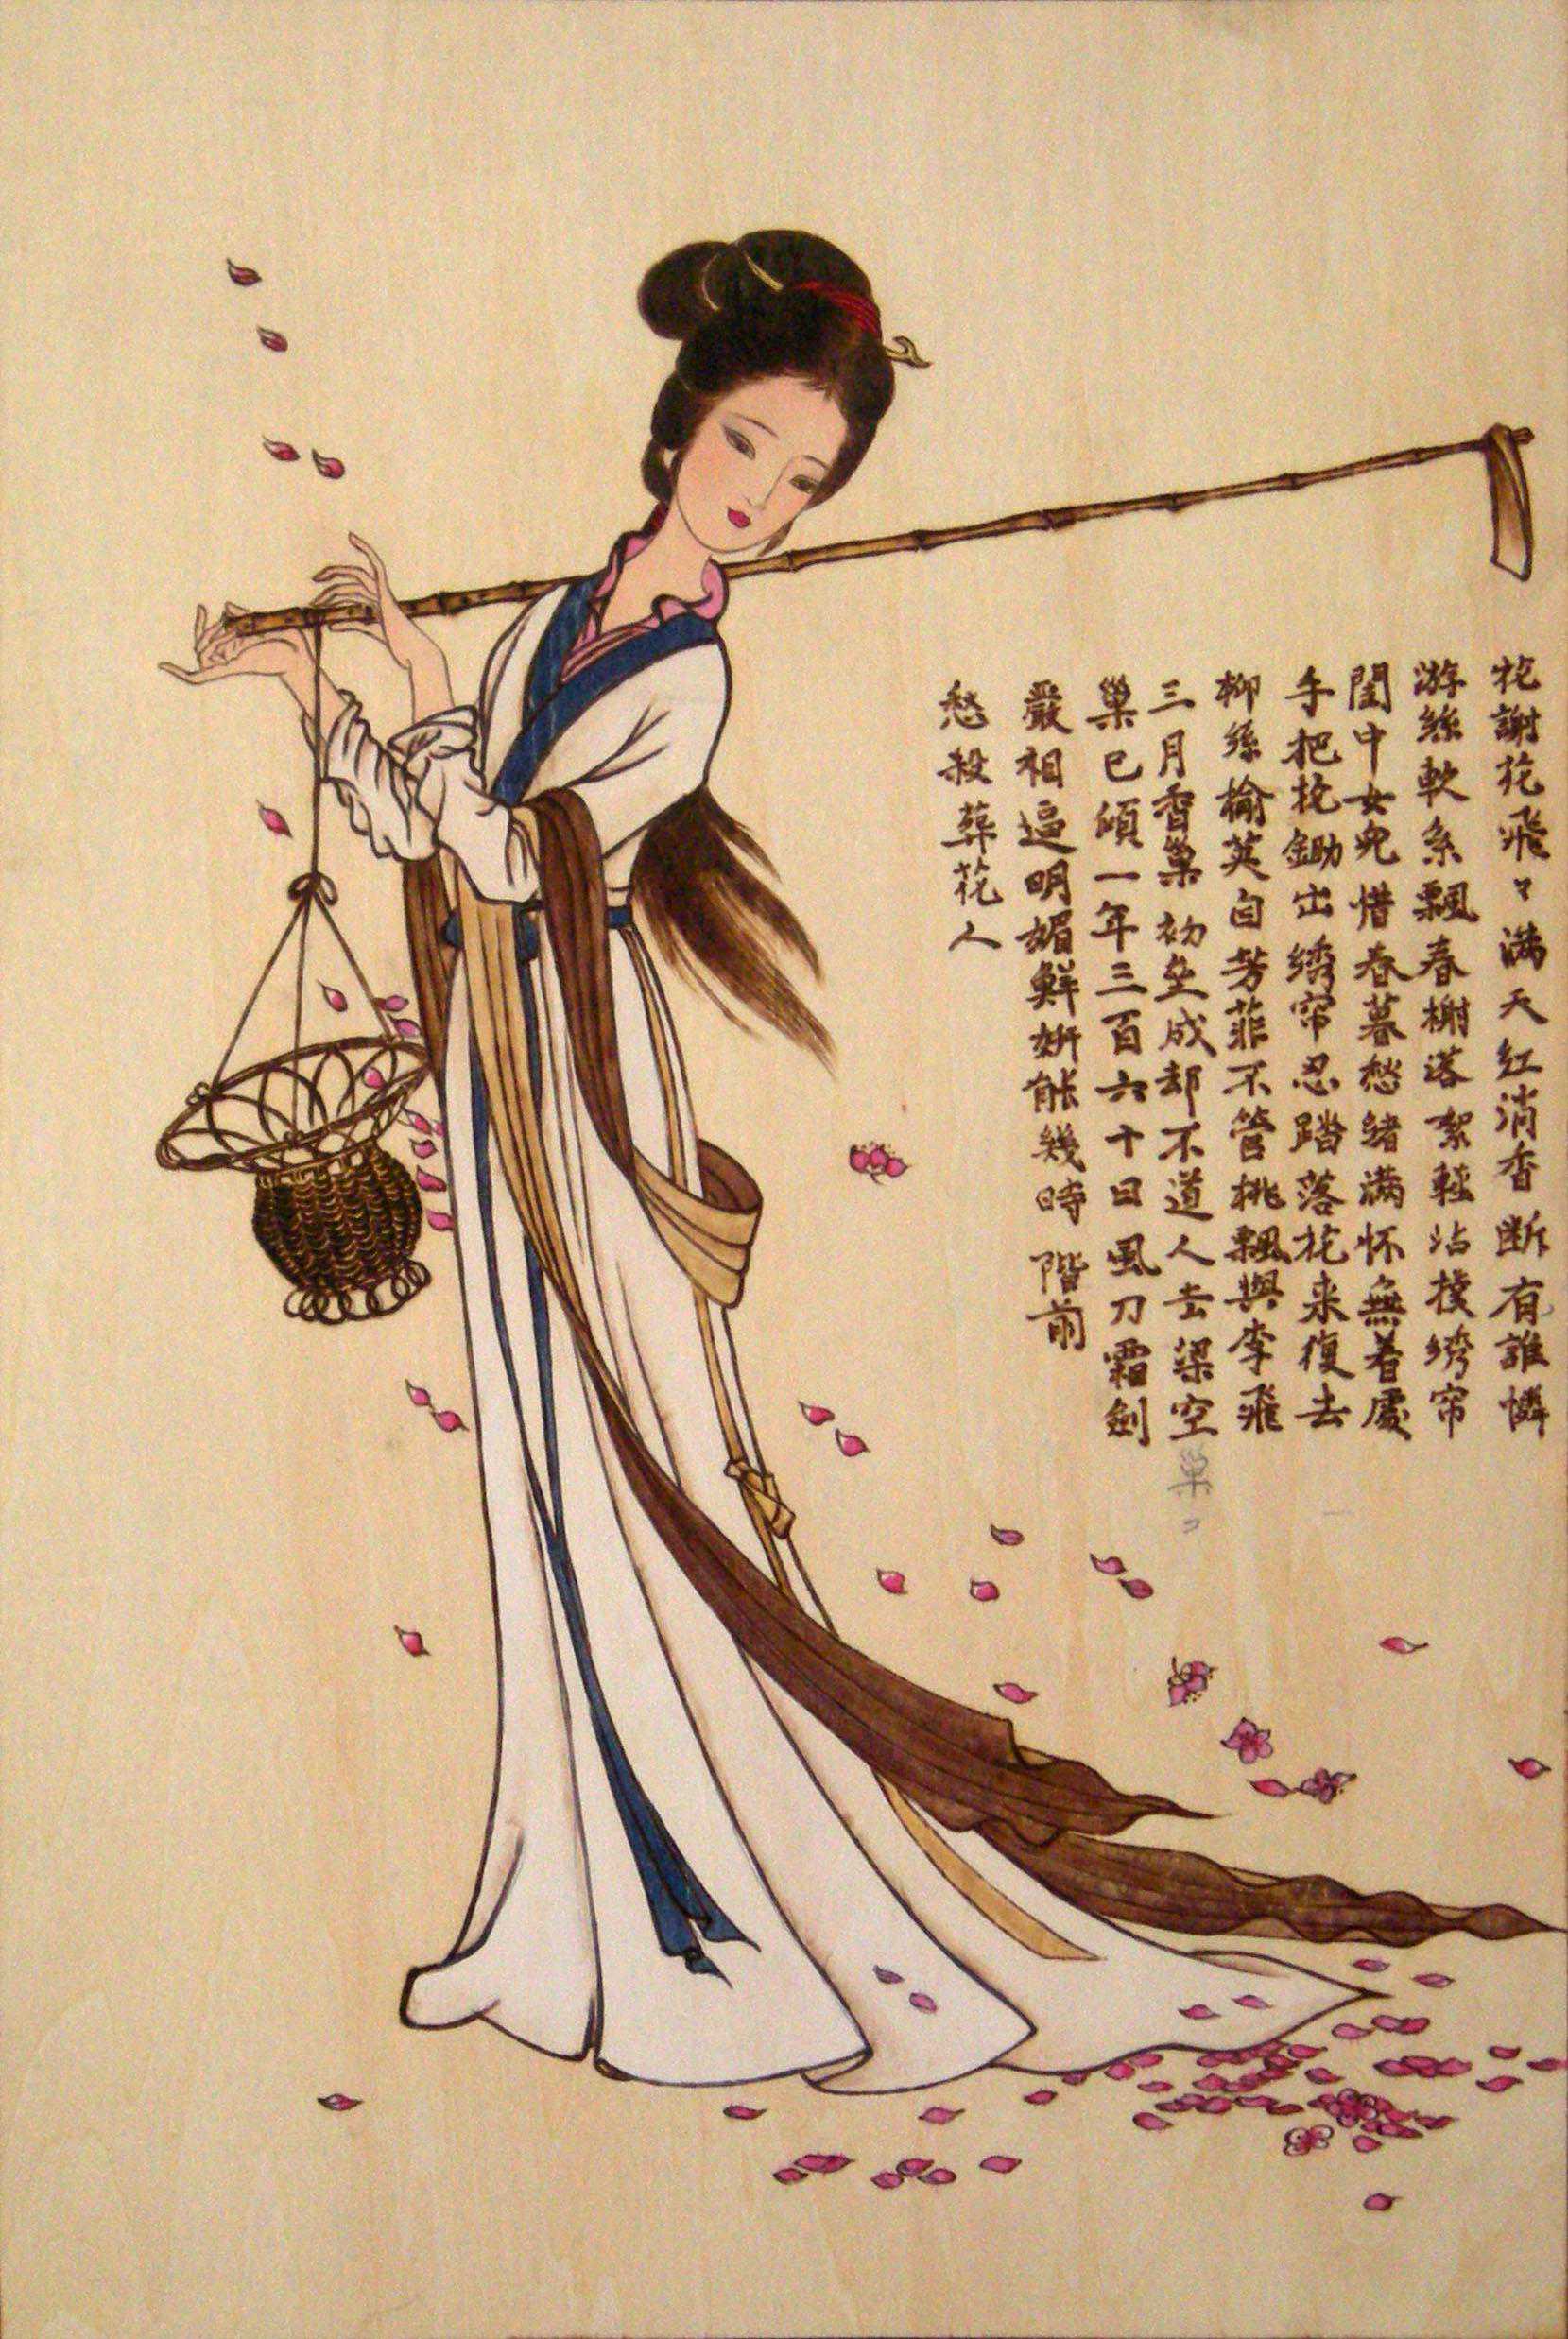 花謝花飛々満天紅消香断有誰憐
游絲軟系飄春榭落絮輕沾撲绣帘
閨中女兒惜春暮愁緒满怀無着處
手把花鋤出绣帘忍踏落花来復去
柳絲榆英自芳菲不管桃飄與李飛
三月香巢初垒成却不道人去梁空
巢已傾一年三百六十日風刀霜劍
嚴相逼明媚鮮妍能幾時階前
愁殺葬花人
巢